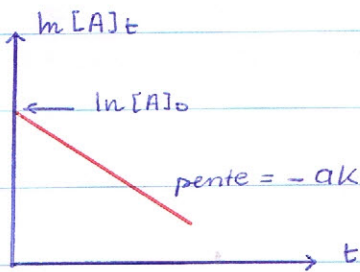 ln [A]t
ln [A]o
pente = - ak
t